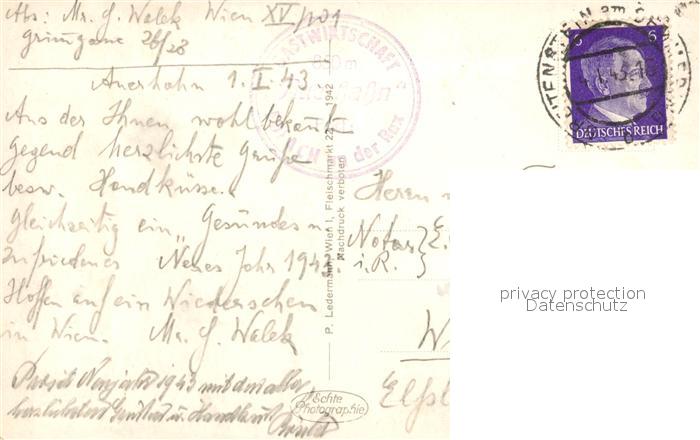 Abs: Mr. G. Walek Wien XV/101
grimgasse 26/28
Auerhahn 1.I.43
Aus der Ihnen wohl bekannten
Gegend herzlichste Grüße
besw. Handküsse.
Gleichzeitig ein Gesundes u
zufriedenes Neues Jahr 1943.
Hoffen auf ein Wiedersehen
in Wien. Mr. G. Walek
Prosit Neujahr 1943 mit den aller
herzlichsten u. Handkuss
GASTWIRTSCHAFT
850 m
der Rax
P. Ledermann, Wien I, Fleischmarkt 22. - 1942
Nachdruck verboten
Echte
Photographie
6 6
DEUTSCHES REICH
Herrn
Notar
i.R.
W
privacy protection
Datenschutz